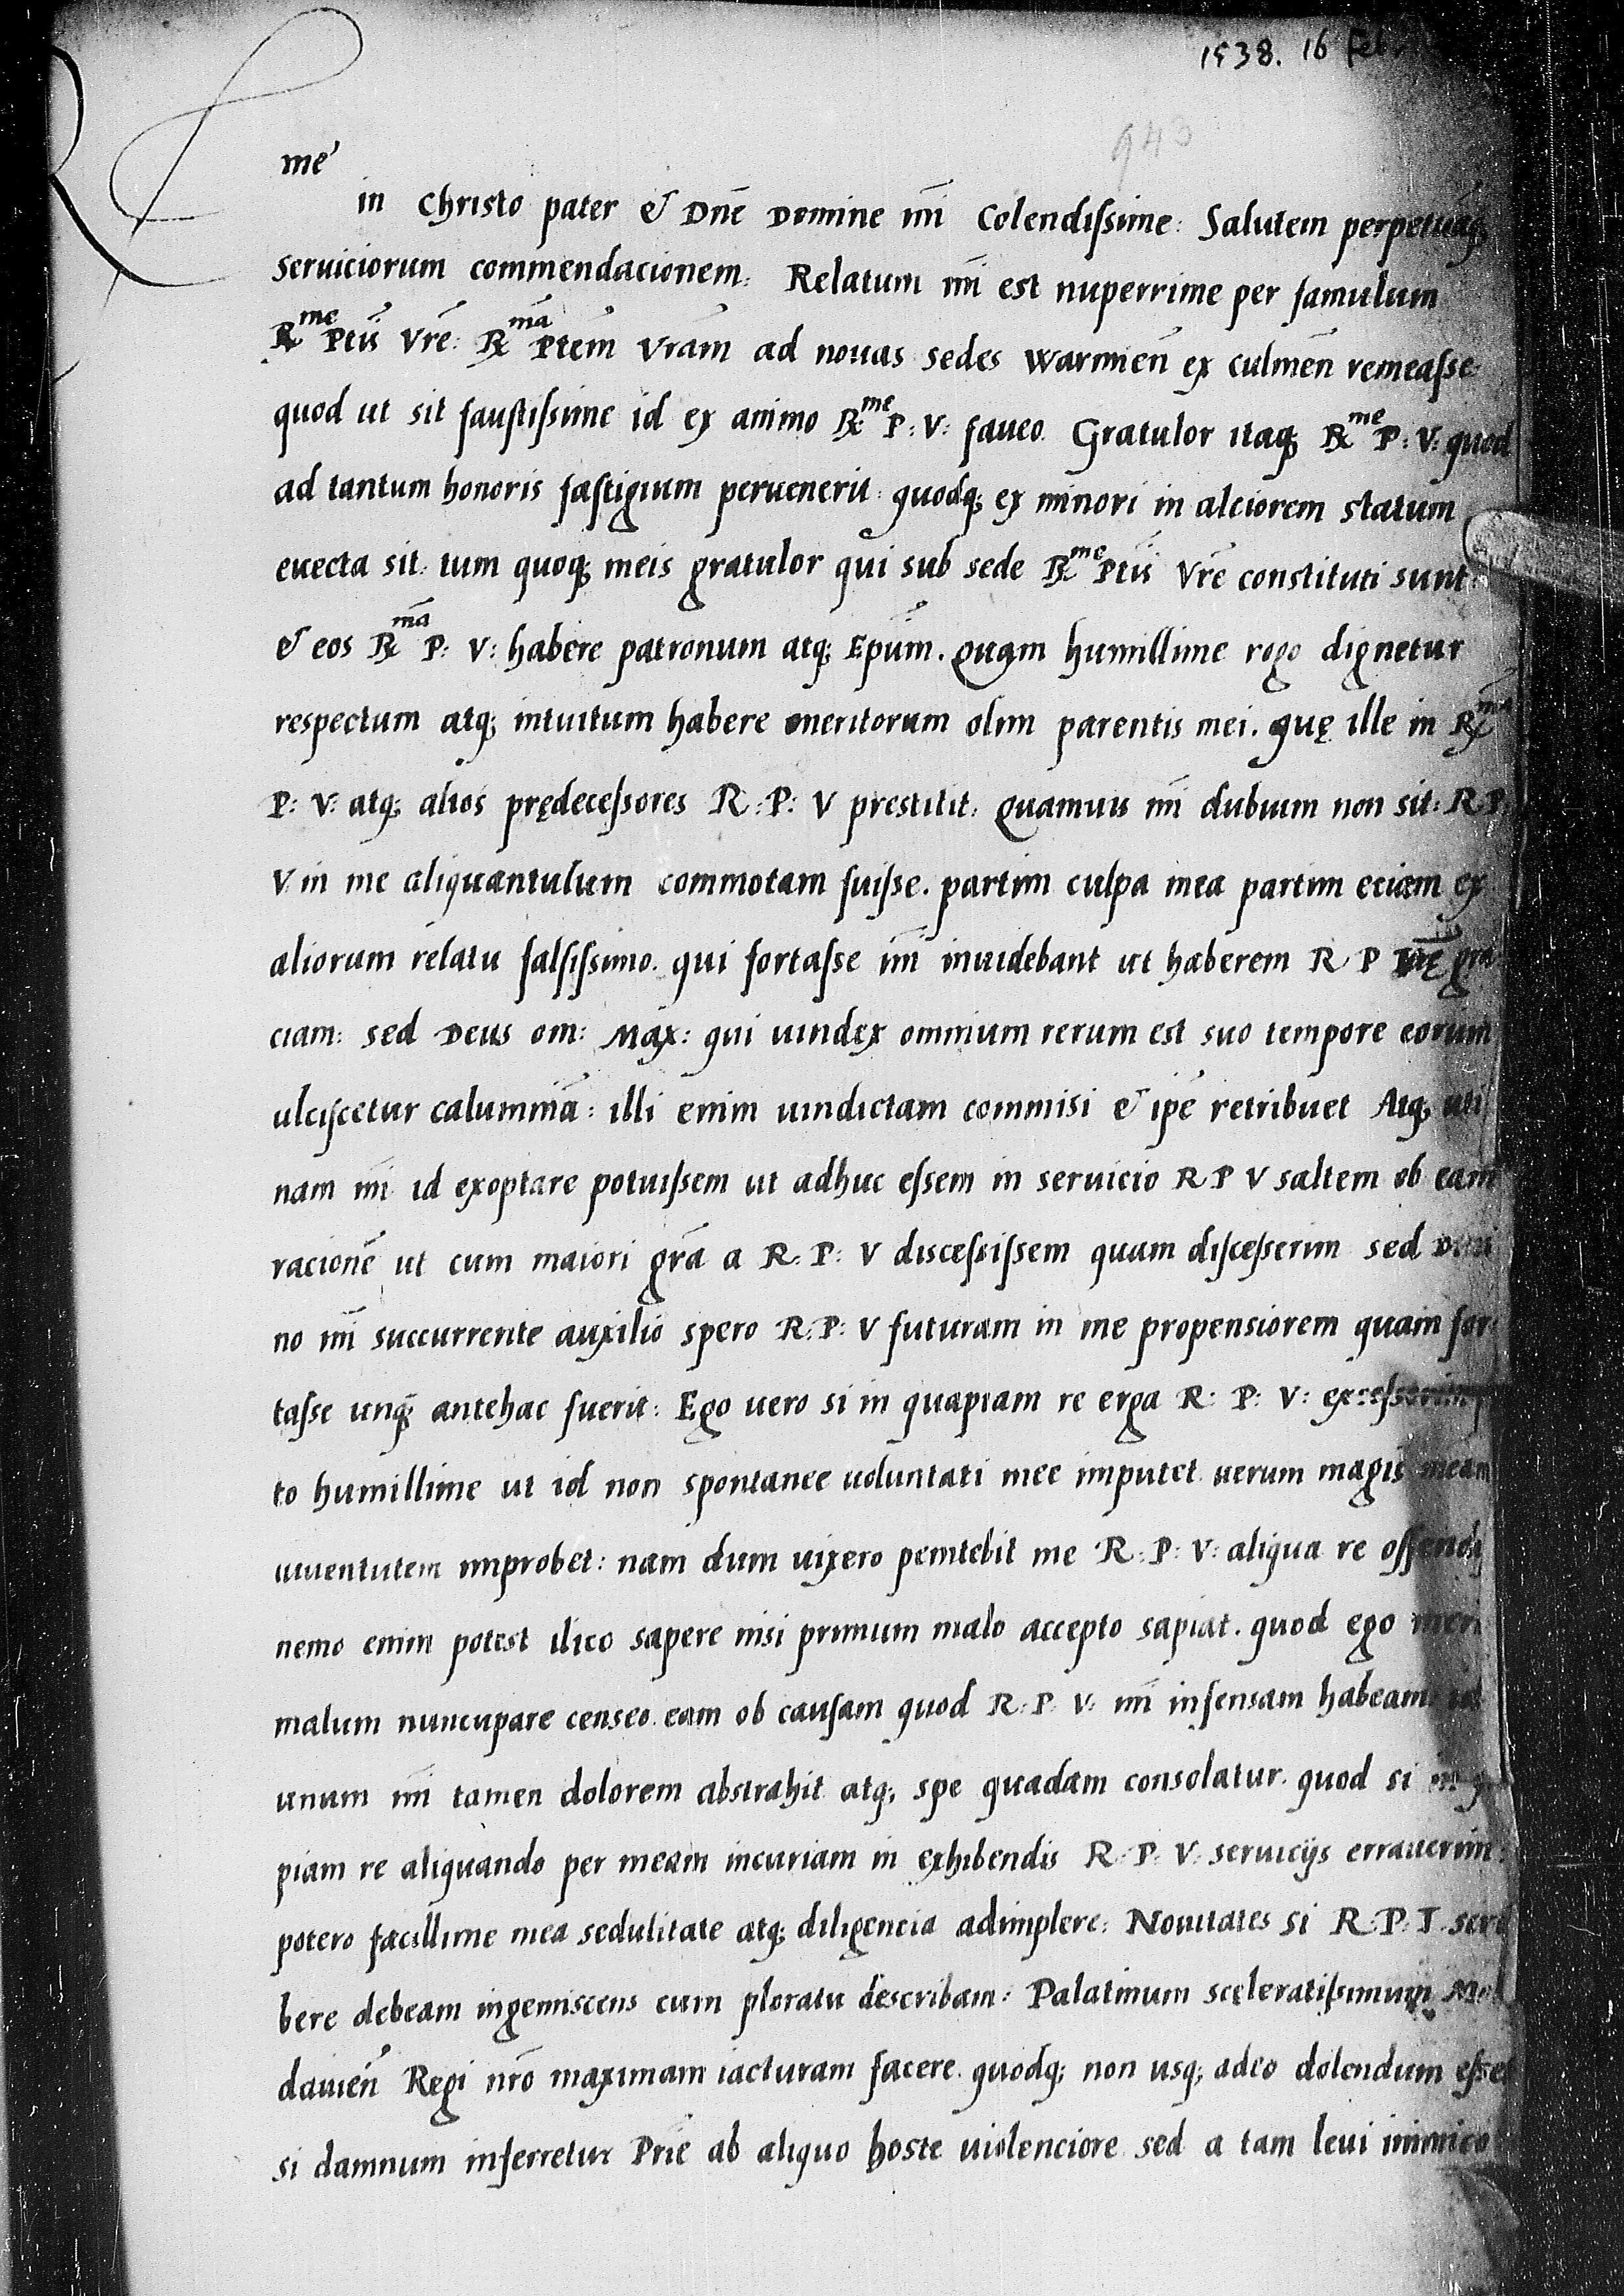 1538. 16 Feb
943
R me
in Christo pater & Dnē Domine mī Colendissime: Salutem perpetuāq;
Seruiciorum commendacionem: Relatum mī est nuperrime per famulum
R^me Ptis Vrē: R^ma Ptem Vram ad nouas sedes Warmien̄ ex culmen̄ remeasse
quod ut sit faustissime id ex animo R^me P: V: faueo. Gratulor itaq; R^me P: V: quod
ad tantum honoris fastigium peruenerit: quodq; ex minori in alciorem statum
euecta sit: tum quoq; meis gratulor qui sub sede R^me Ptis Vrē constituti sunt:
& eos R^ma P: V: habere patronum atq; Epūm. Quam humillime rogo dignetur
respectum atq; intuitum habere meritorum olim parentis mei. quę ille in R^ma
P: V: atq; alios prędecessores R: P: V prestitit: Quamuis mī dubium non sit: R P:
V in me aliquantulum commotam fuisse. partim culpa mea partim eciam ex
aliorum relatu falsissimo. qui fortasse mī inuidebant ut haberem R P Vrę gra
ciam: sed Deus om: Max: qui uindex omnium rerum est suo tempore eorum
ulciscetur calumniā: illi enim uindictam commisi & ipē retribuet Atq; uti
nam mī id exoptare potuissem ut adhuc essem in seruicio R P V saltem ob eam
racionē ut cum maiori grā a R: P: V discessissem quam discesserim sed Diui
no mī succurrente auxilio spero R: P: V futuram in me propensiorem quam for
tasse unq; antehac fuerit: Ego uero si in quapiam re erga R: P: V: excesserim
to humillime ut id non spontanee uoluntati mee imputet uerum magis meam
iuuentutem improbet: nam dum uixero penitebit me R: P: V: aliqua re offendi
nemo enim potest ilico sapere nisi primum malo accepto sapiat. quod ego meri
malum nuncupare censeo eam ob causam quod R: P: V: mī infensam habeam
unum mī tamen dolorem abstrahit atq; spe quadam consolatur. quod si in
piam re aliquando per meam incuriam in exhibendis R: P: V: seruicijs errauerim:
potero facillime mea sedulitate atq; diligencia adimplere: Nouitates si R: P: T. scri
bere debeam ingemiscens cum ploratu describam: Palatinum scęleratissimum Mol
dauien̄ Regi nrō maximam iacturam facere. quodq; non usq; adeo dolendum esset
si damnum inferretur Prīe ab aliquo hoste uiolenciore sed a tam leui inimico